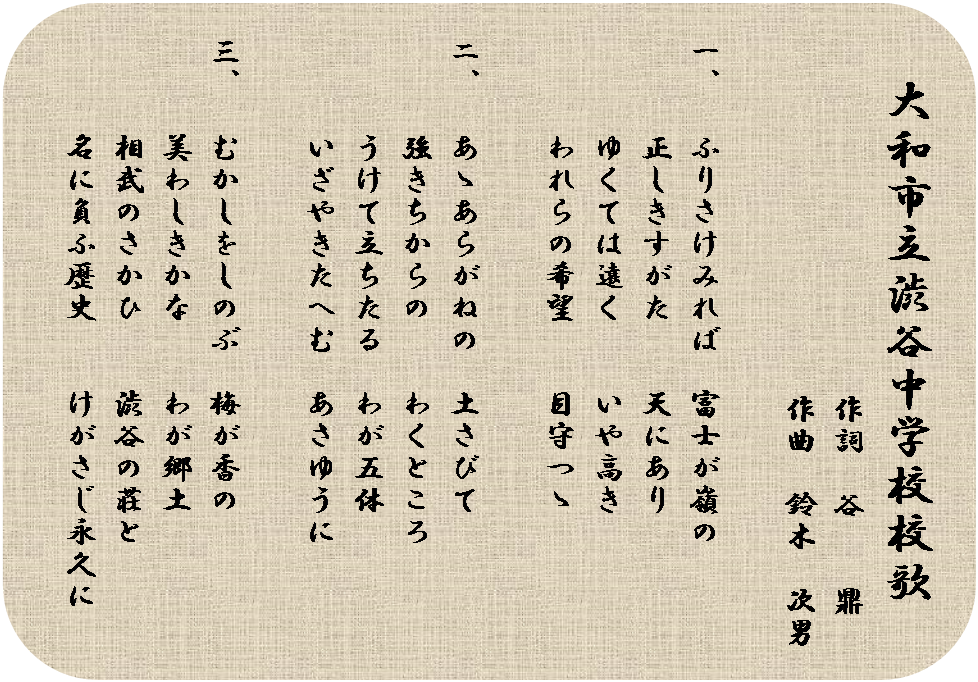 大和市立渋谷中学校校歌
作詞　谷　鼎
作曲　鈴木　次男
一、　ふりさけみれば　富士が嶺の
正しきすがた　天にあり
ゆくては遠く　いや高き
われらの希望　目守つゝ
二、　あゝあらがねの　土さびて
強きちからの　わくところ
うけて立ちたる　わが五体
いざやきたへむ　あさゆうに
三、　むかしをしのぶ　梅が香の
美わしきかな　わが郷土
相武のさかひ　渋谷の荘と
名に負ふ歴史　けがさじ永久に